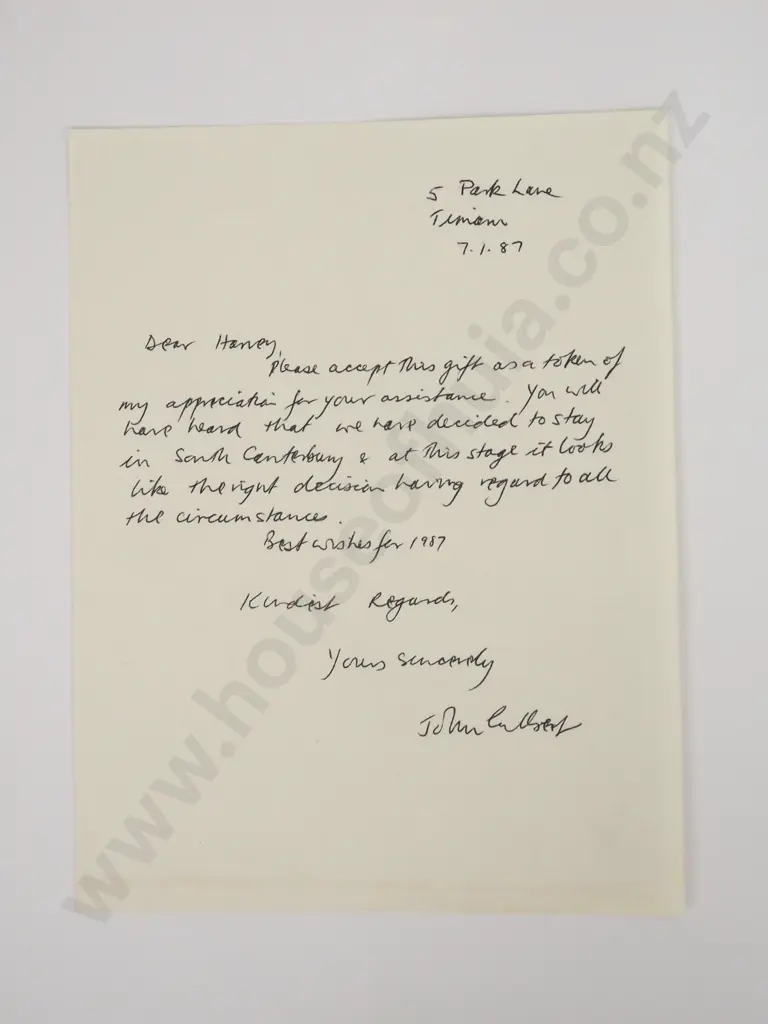 5 Park Lane
Timaru
7.1.87
Dear Harvey,
Please accept this gift as a token of
my appreciation for your assistance. You will
have heard that we have decided to stay
in South Canterbury & at this stage it looks
like the right decision having regard to all
the circumstances.
Best wishes for 1987
Kindest Regards,
Yours sincerely
John
www.houseofhuia.co.nz